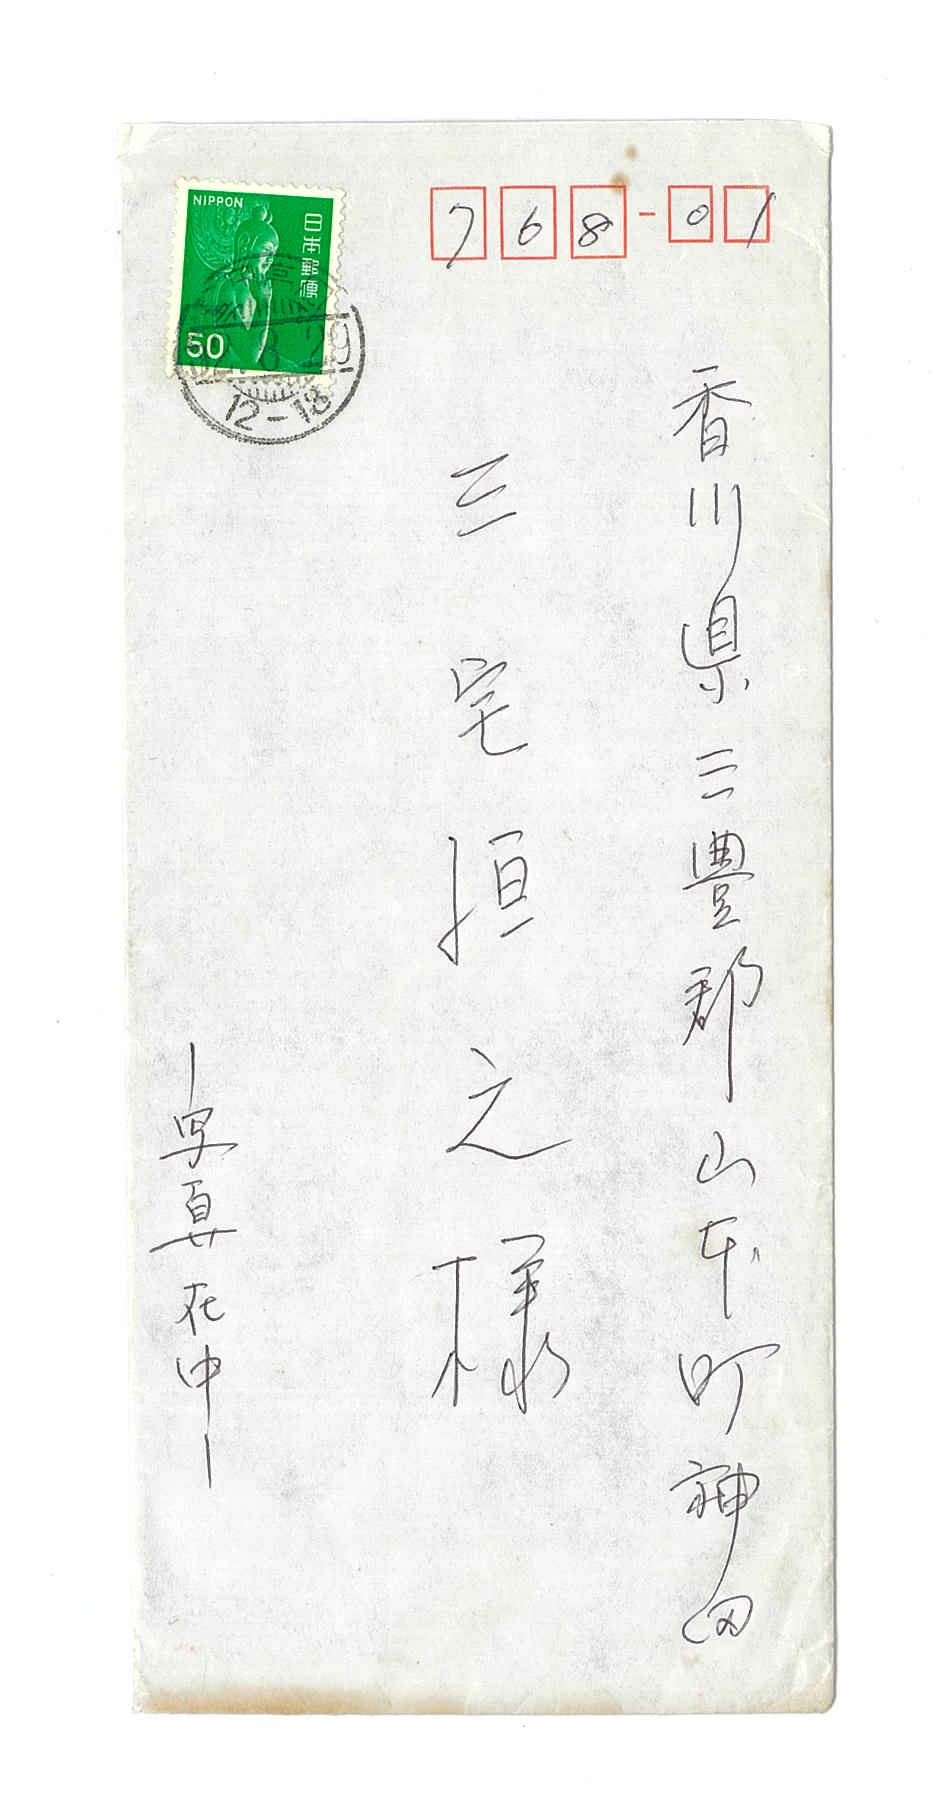 NIPPON
日本郵便
50
12-18
768-01
香川県三豊郡山本町神田
三宅恒之様
写真在中